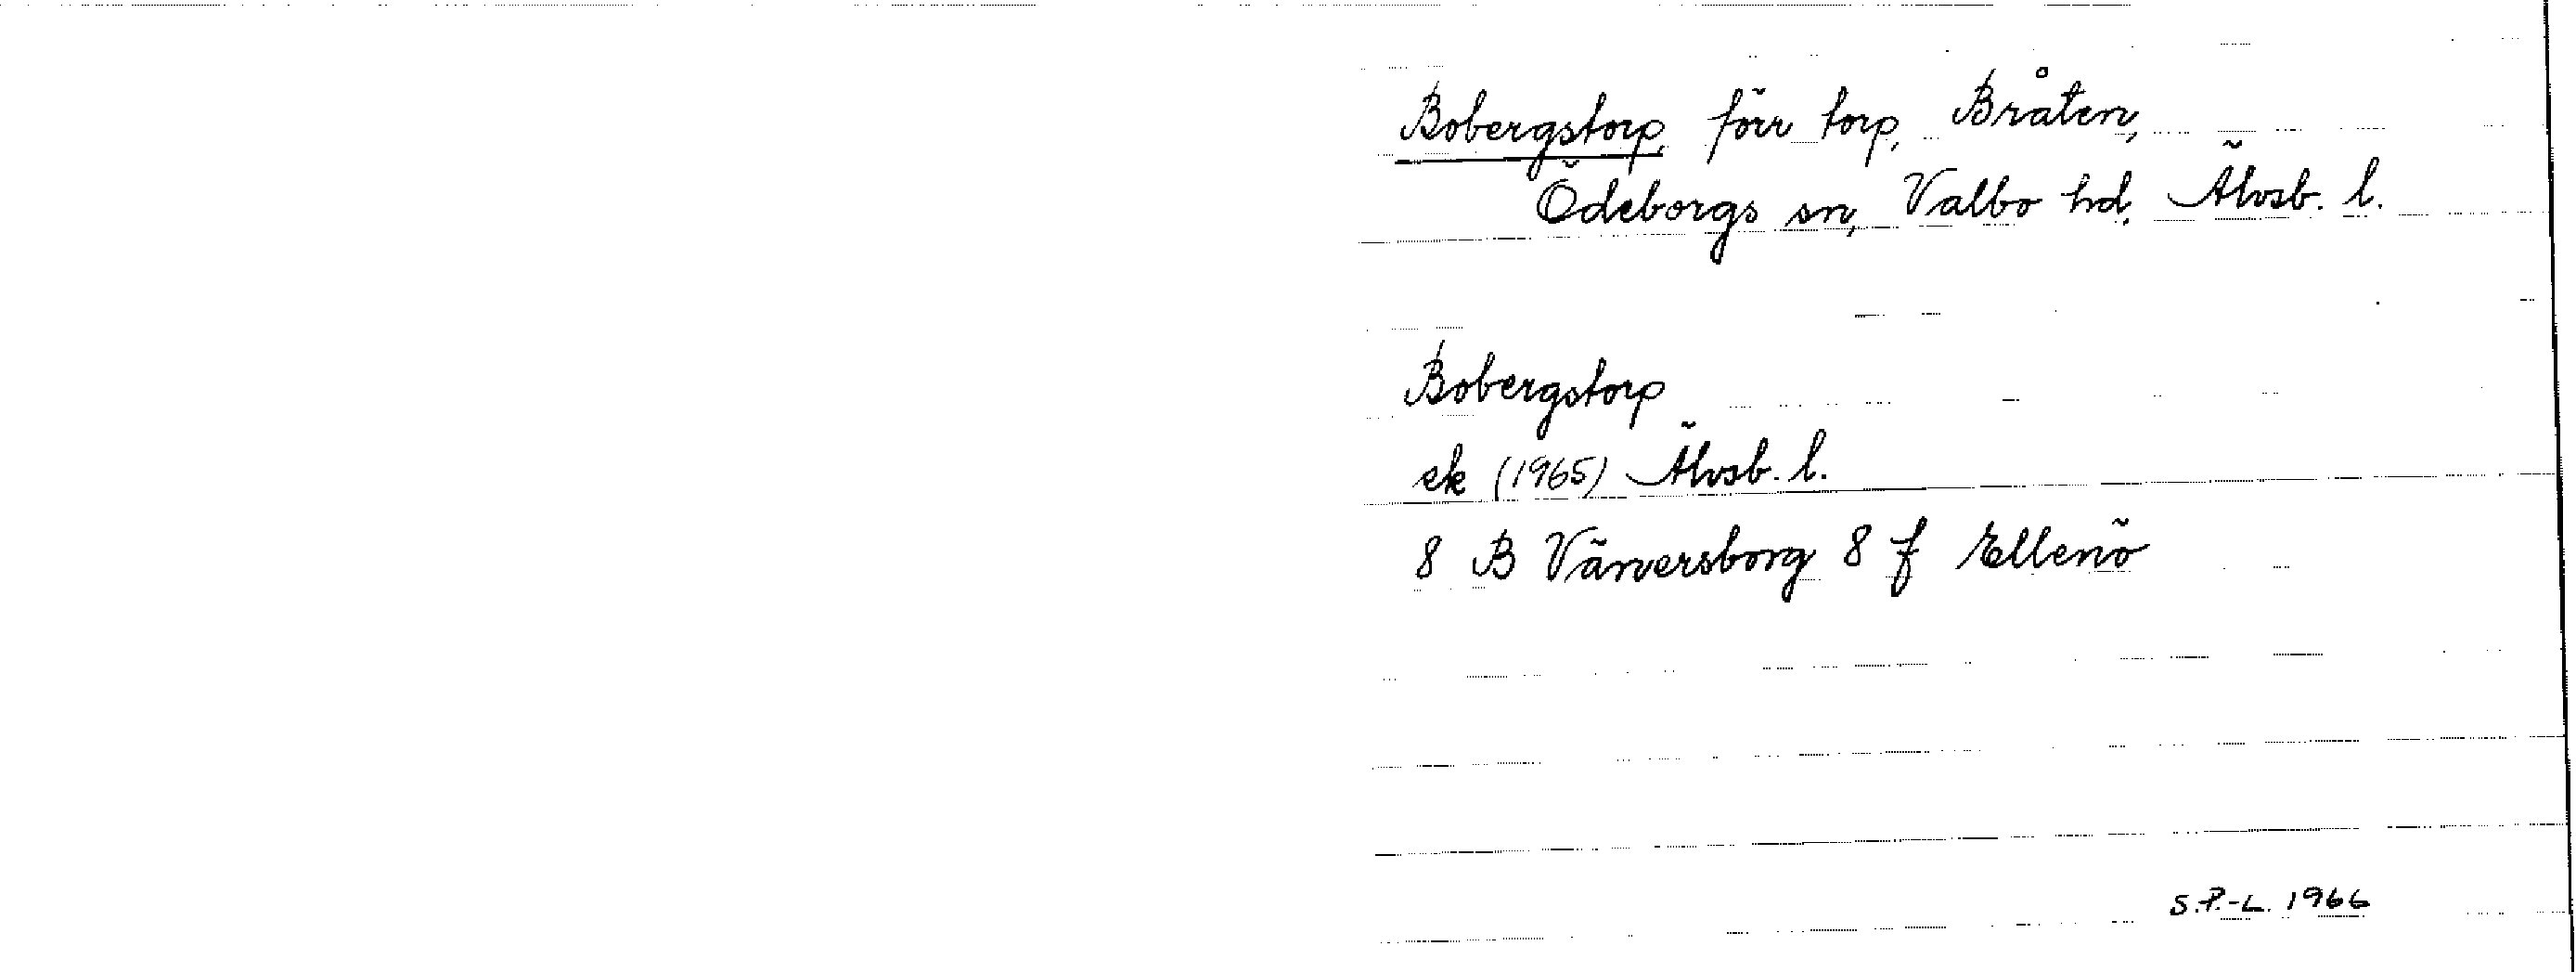 Bobergstorp, förr torp, Bråten,
Ödeborgs sn, Valbo hd, Älvsb. l.
Bobergstorp
ek (1965) Älvsb. l.
8 B Vänersborg 8 f Ellenö
S.P.-L. 1966